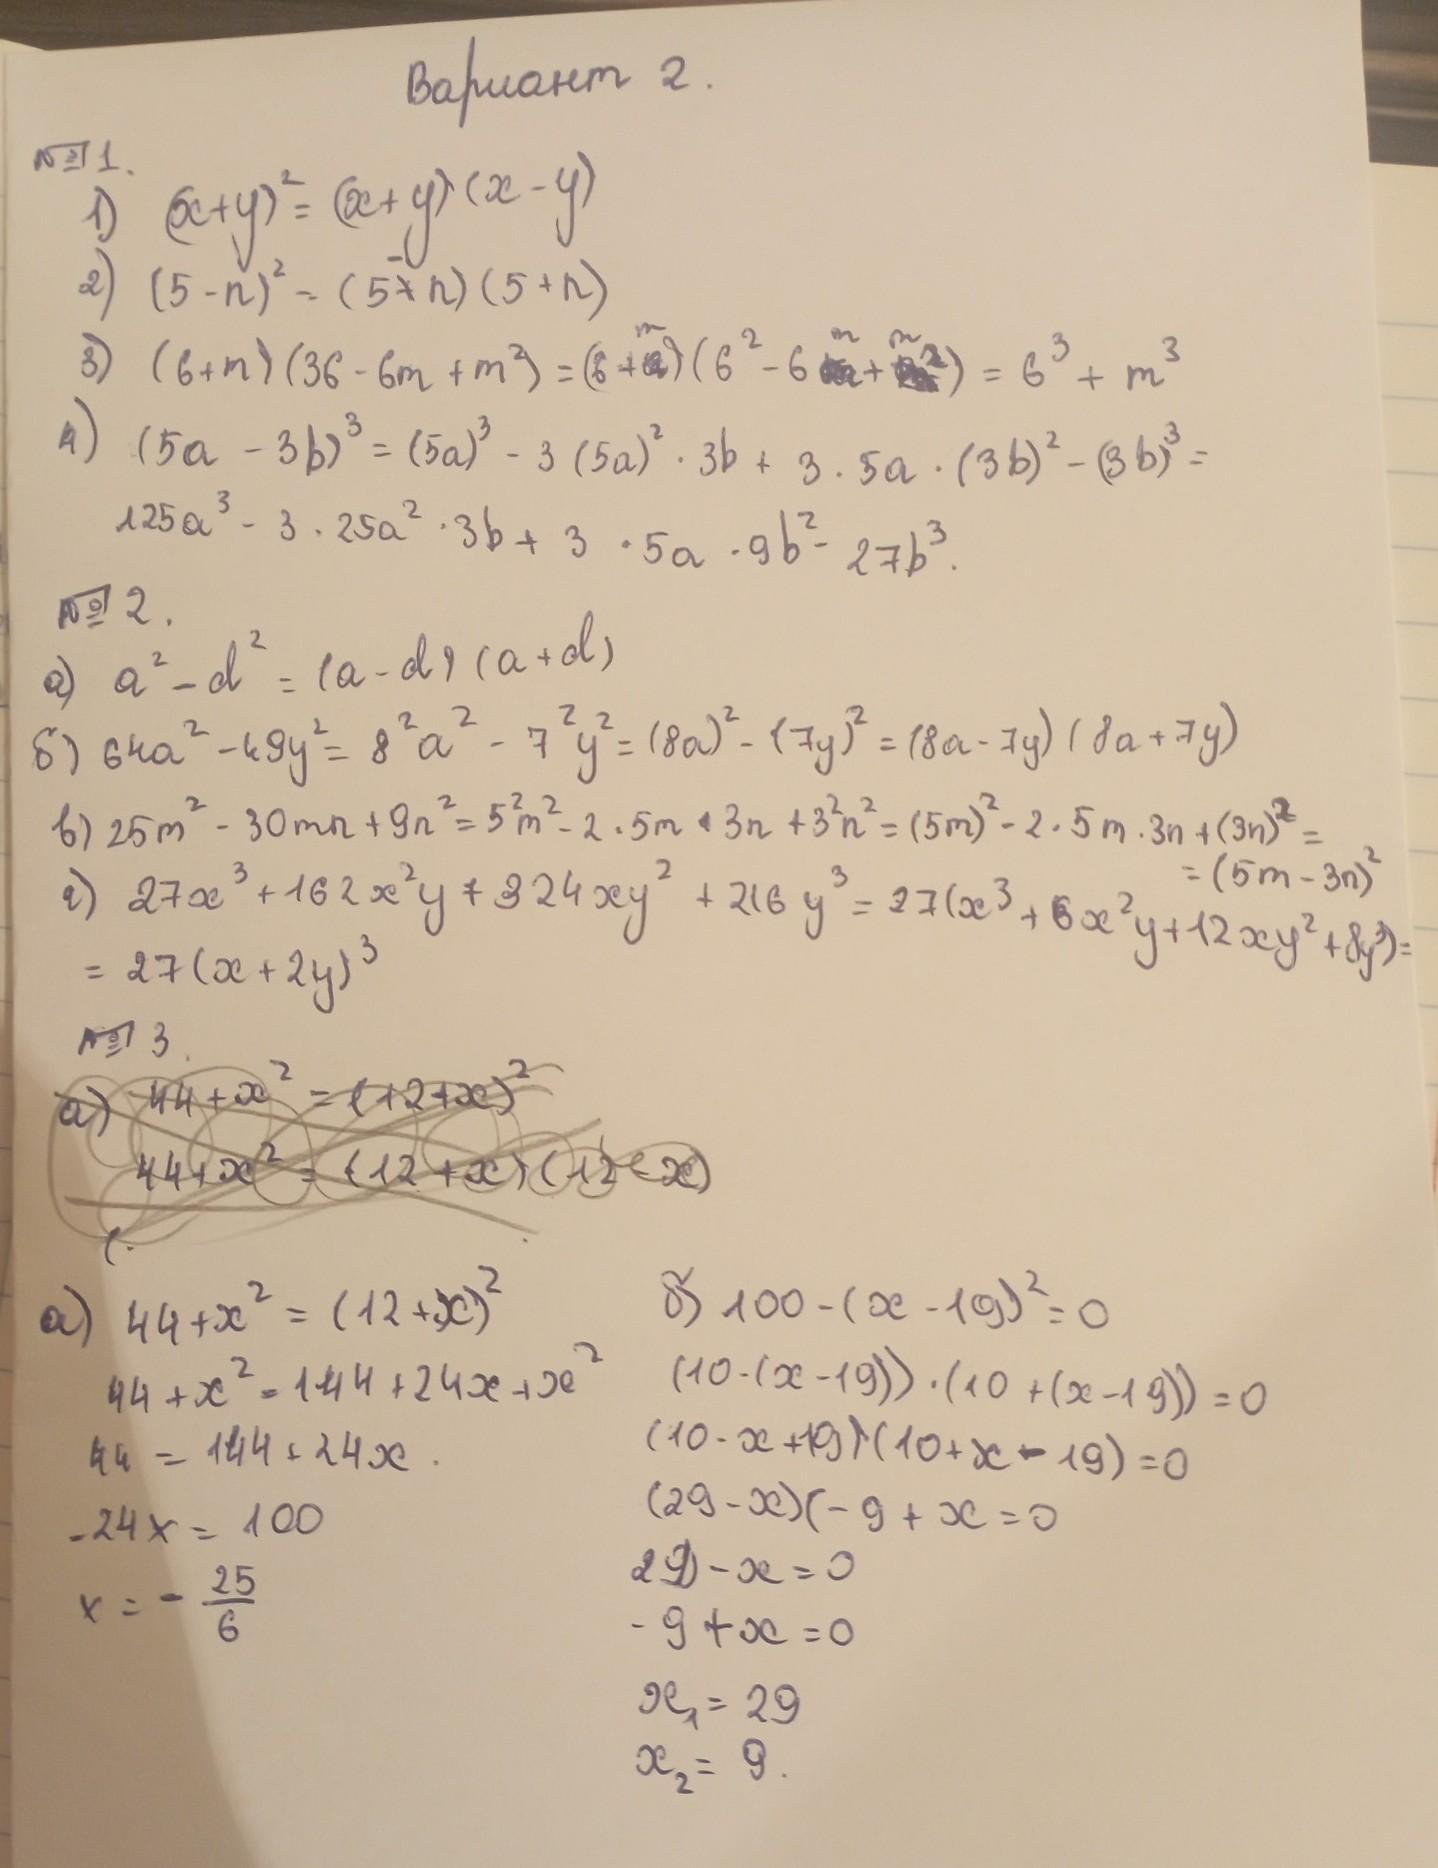 Вариант 2.
№1.
1) (x+y)² = (x+y)(x-y)
2) (5-n)² = (5-n)(5+n)
3) (6+m)(36-6m+m²) = (6+m)(6²-6m+m²) = 6³+m³
4) (5a-3b)³ = (5a)³ - 3(5a)²·3b + 3·5a·(3b)² - (3b)³ =
125a³ - 3·25a²·3b + 3·5a·9b² - 27b³.
№2.
а) a²-d² = (a-d)(a+d)
б) 64a²-49y² = 8²a² - 7²y² = (8a)² - (7y)² = (8a-7y)(8a+7y)
в) 25m²-30mn+9n² = 5²m²-2·5m·3n+3²n² = (5m)²-2·5m·3n+(3n)² =
= (5m-3n)²
г) 27x³+162x²y+324xy²+216y³ = 27(x³+6x²y+12xy²+8y³) =
= 27(x+2y)³
№3.
а) 44+x² = (12+x)²
44+x² = (12+x)(12-x)
а) 44+x² = (12+x)²
44+x² = 144+24x+x²
44 = 144+24x.
-24x = 100
x = - 25/6
б) 100-(x-19)² = 0
(10-(x-19))·(10+(x-19)) = 0
(10-x+19)(10+x-19) = 0
(29-x)(-9+x = 0
29-x = 0
-9+x = 0
x₁ = 29
x₂ = 9.